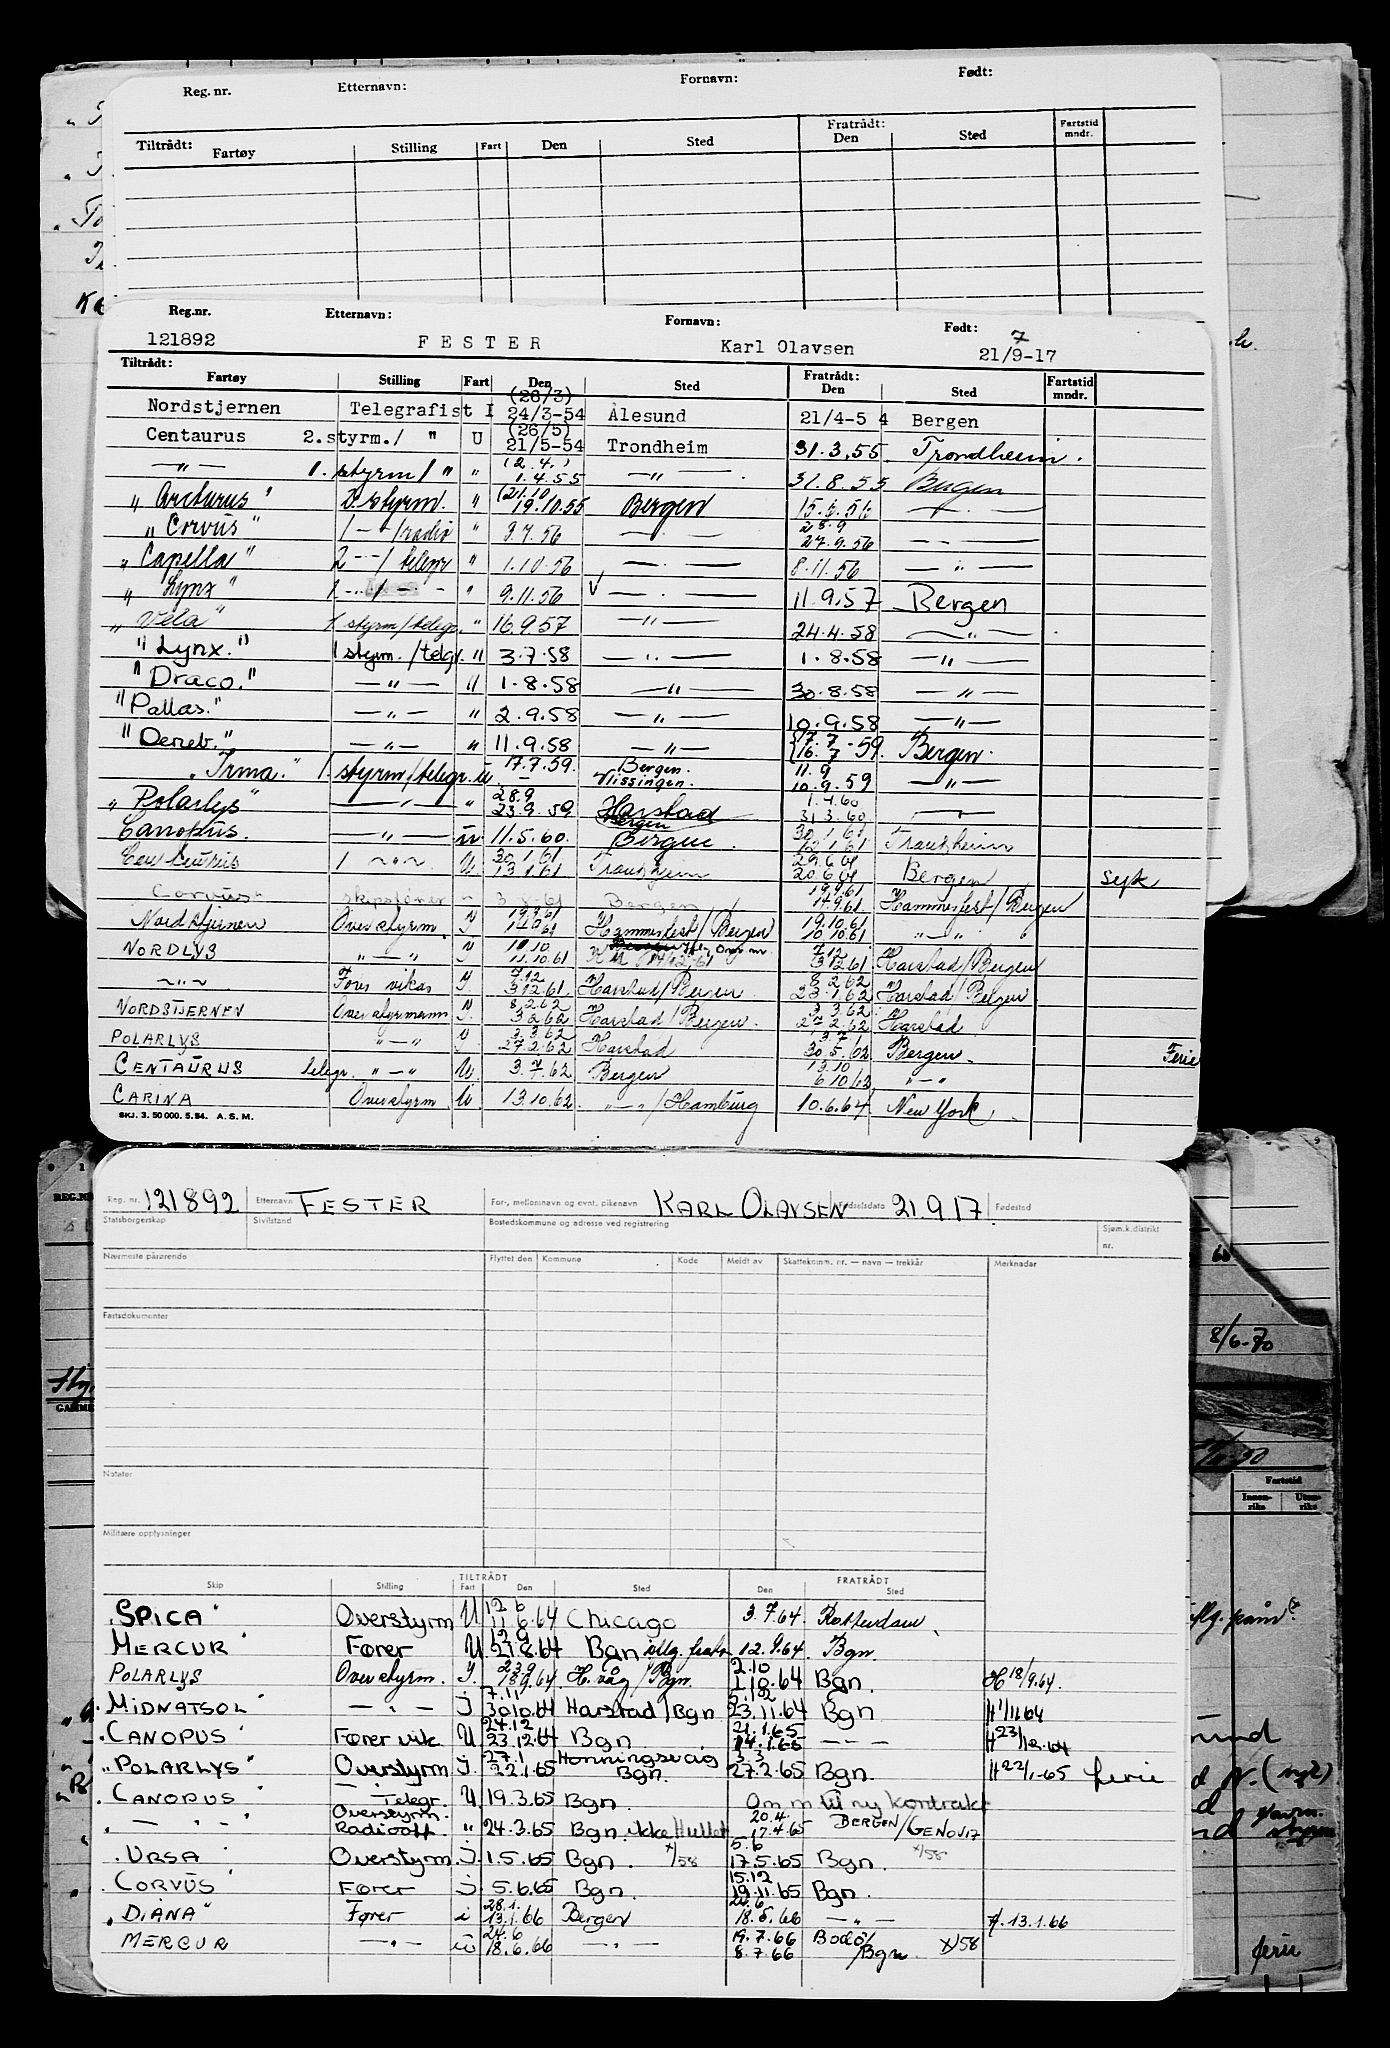 Reg. nr. Etternavn: Fornavn: Født:
Tiltrådt: Fratrådt:
Fartøy Stilling Fart Den Sted Den Sted Fartstid mndr.
Reg.nr. Etternavn: Fornavn: Født:
121892 FESTER Karl Olavsen 21/9-17
7
Tiltrådt: Fratrådt:
Fartøy Stilling Fart Den Sted Den Sted Fartstid mndr.
(26/3)
Nordstjernen Telegrafist I 24/3-54 Ålesund 21/4-5 4 Bergen
(26/5)
Centaurus 2.styrm./ " U 21/5-54 Trondheim 31.3.55 Trondheim.
(2.4.)
—"— 1. styrm/ " " 1.4.55 —"— 31.8.55 Bergen
(21.10
" Arcturus " 2. styrm. " 19.10.55 Bergen 15.5.56 —"—
28.9
" Corvus " 1 -"-/radio " 9.7.56 —"— 27.9.56 —"—
" Capella " 2 -"-/ telegr " 1.10.56 —"— 8.11.56 —"—
" Lynx " 1 " 9.11.56 —"— 11.9.57 Bergen
" Vela " 1 styrm/telegr. " 16.9.57 —"— 24.4.58 —"—
"Lynx." 1 styrm./telgr. " 3.7.58 —"— 1.8.58 —"—
"Draco." —"— " 1.8.58 —"— 30.8.58 —"—
"Pallas." —"— " 2.9.58 —"— 10.9.58 —"—
17.7
"Deneb." —"— " 11.9.58 —"— 16.7-59. Bergen.
"Irma." 1. styrm/telegr. u 17.7.59. Bergen. Vlissingen. 11.9 10.9.59 —"—
28.9 1.4.60
"Polarlys" —"— " 23.9.59 Harstad Bergen 31.3.60 —"—
30.1.61
Canopus. —"— u. 11.5.60. Bergen. 12.1.61 Trondheim
30.1.61 29.6.61
Centaurus 1 —"— U. 13.1.61 Trondheim 20.6.61 Bergen syk
19.9.61
Corvus skipsfører " 3.8.61 Bergen 17.9.61 Hammerfest/Bergen
19.9.61 19.10.61
Nordstjernen Overstyrm. I Hammerfest/Bergen 10.10.61 —"—
10.10 7.12
NORDLYS —"— I 11.10.61 3.12.61 Harstad/Bergen
7.12 8.2.62
—"— Fører vikar I. 3.12.61 Harstad/Bergen 23.1.62 Harstad/Bergen
8.2.62 3.3.62
NORDSTJERNEN Overstyrmann I. 3.2.62 Harstad/Bergen. 27.2.62 Harstad
3.3.62 3.7
POLARLYS —"— I 27.2.62 Harstad 30.5.62 Bergen. Ferie
13.10
CENTAURUS telegr. —"— U. 3.7.62 Bergen 6.10.62 —"—
CARINA Overstyrm U. 13.10.62 —"—/Hamburg 10.6.64 New York.
SKJ. 3. 50 000. 5. 54. A. S. M.
Reg. nr. 121892 Etternavn FESTER For-, mellomnavn og evnt. pikenavn KARL OLAVSEN Fødselsdato 21.9 17. Fødested
Statsborgerskap Sivilstand Bostedskommune og adresse ved registrering Sjøm.k.distrikt nr.
Nærmeste pårørende Flyttet den Kommune Kode Meldt av Skattekomm. nr. — navn — trekkår Merknader
Fartsdokumenter
Notater
Militære opplysninger
TILTRÅDT FRATRÅDT
Skip Stilling Fart Den Sted Den Sted
12 6
"SPICA" Overstyrm U 11.6.64 Chicago 3.7.64. Rotterdam.
12 9
MERCUR" Fører U 27.8.64 Bgn 12.9.64 Bgn.
23.9 2.10
POLARLYS Overstyrm. I. 18.9.64 H.våg/Bgn. 1.10.64 Bgn. H 18/9.64.
7.11 5.12
"MIDNATSOL" —"— J 30.10.64 Harstad/Bgn 23.11.64 Bgn H 1/11.64
24.12 21.1.65
"CANOPUS" Fører vik. U 23.12.64 Bgn. 14.1.65 —"— H 23/12.64
27.1 3.3
"POLARLYS" Overstyrm J. 22.1.65 Honningsvåg Bgn. 27.2.65 Bgn. H 22/1-65 ferie
"CANOPUS —"— Telegr. U. 19.3.65 Bgn. Om m til ny kontrakt
20.4.
" — " — Overstyrm. Radiooff. " 24.3.65 Bgn. ikke 17.4.65 BERGEN/GENOVA
5.6
"URSA" Overstyrm. J. 1.5.65 Bgn. x/58 17.5.65 Bgn. x/58
15.12
"CORVUS" Fører J. 5.6.65 Bgn. 19.11.65 Bgn.
28.1. 24.6
"DIANA" Fører i 13.1.66 Bergen 18.6.66 —"— 13.1.66
24.6 19.7.66
MERCUR —"— u 18.6.66 —"— 8.7.66 Bodø/Bgn. x/58
8/6-70
Fartstid
Innen-riks Uten-riks
ferie